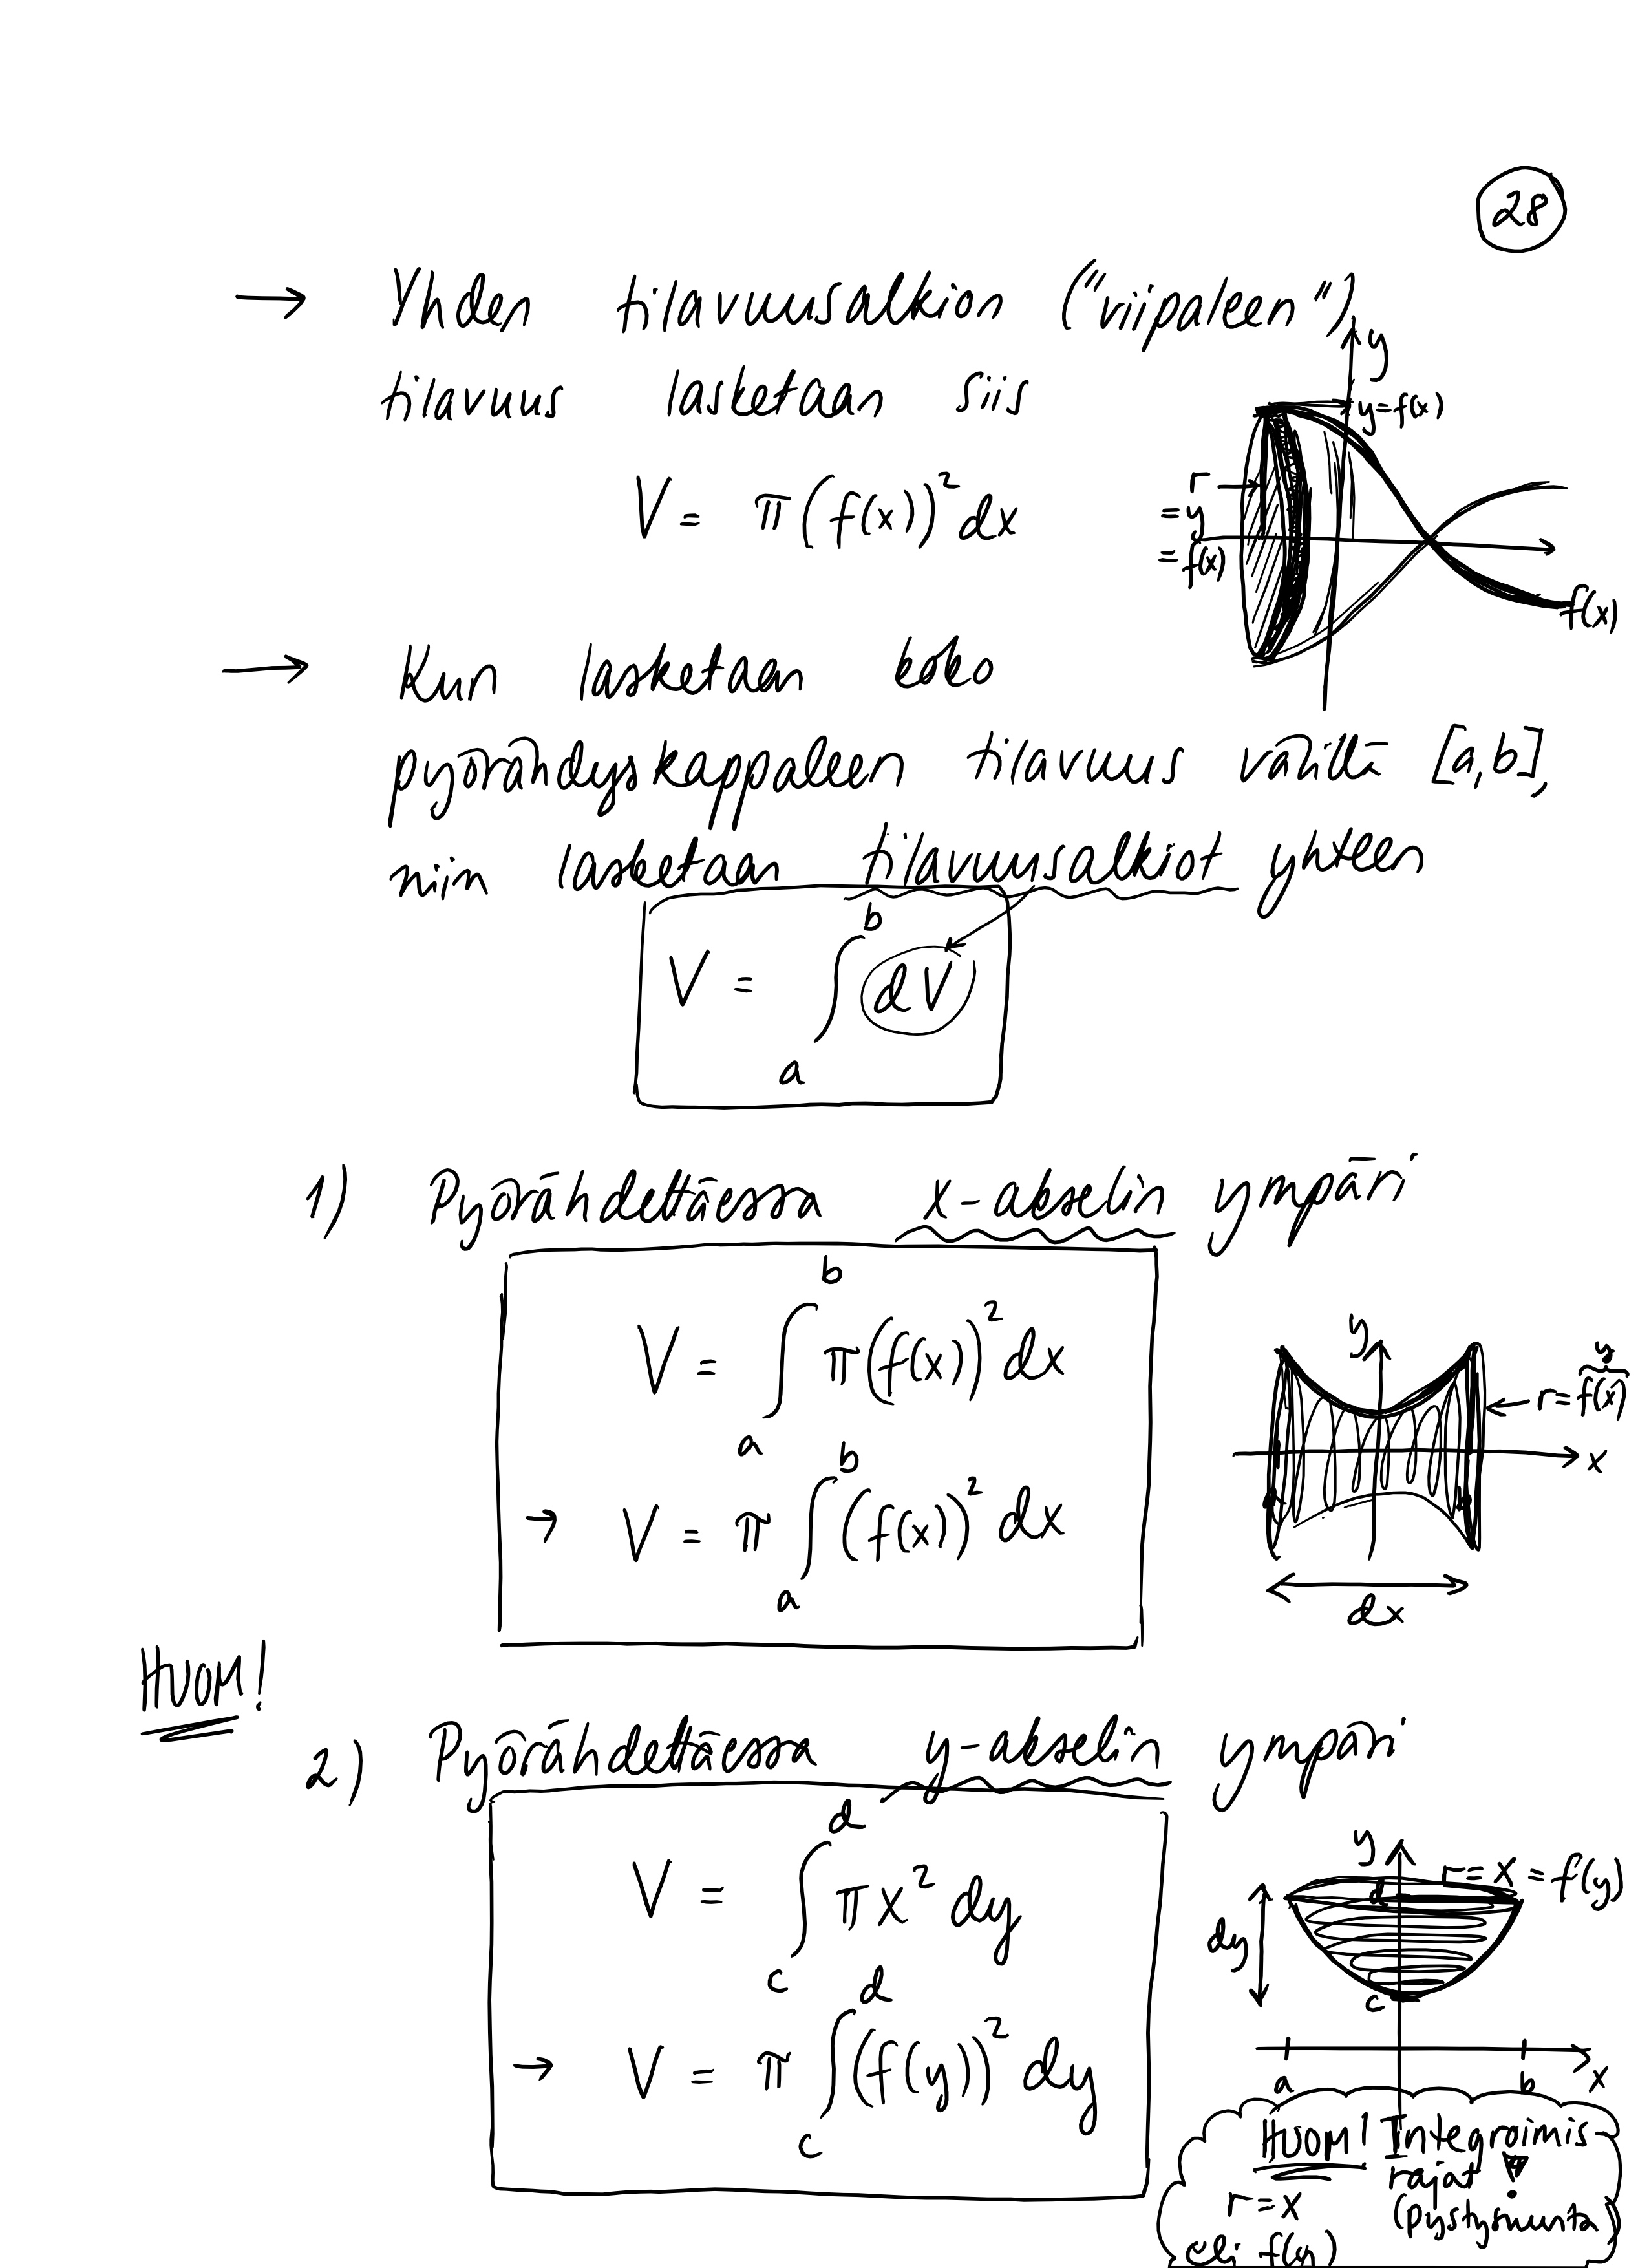 28
→ Yhden tilavuusalkion ("viipaleen")
tilavuus lasketaan siis
V = π(f(x))² dx
y
y=f(x)
r →
= y
= f(x)
f(x)
→ Kun lasketaan koko
pyörähdyskappaleen tilavuus välillä [a,b],
niin lasketaan tilavuusalkiot yhteen
V = ∫ₐᵇ dV
1) Pyörähdettäessä x-akselin ympäri
V = ∫ₐᵇ π(f(x))² dx
→ V = π ∫ₐᵇ (f(x))² dx
y
y
r = f(x)
x
dx
HUOM!
2) Pyörähdettäessä y-akselin ympäri
V = ∫_c^d πx² dy
→ V = π ∫_c^d (f(y))² dy
y
r = x = f(y)
d
dy
c
a
b
x
HUOM! Integroimis-
rajat !
(pystysuunta
r = x
eli f(y)